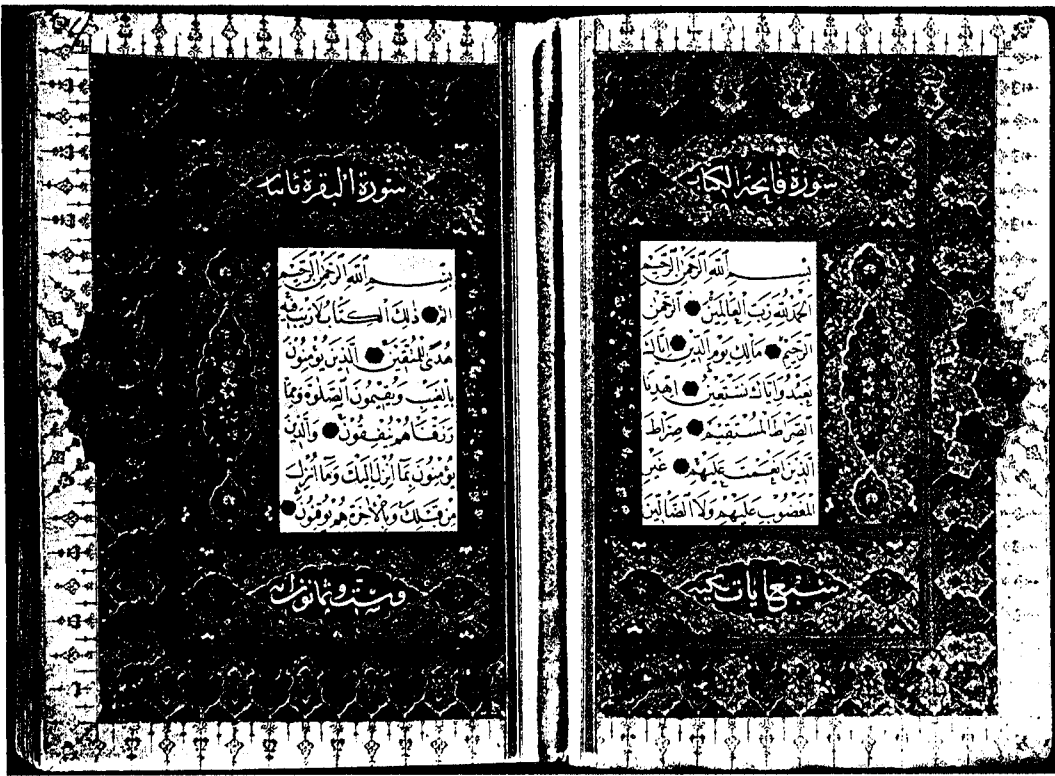 سورة فاتحة الكتاب
بِسْمِ اللهِ الرَّحْمٰنِ الرَّحِيمِ
اَلْحَمْدُ لِلّٰهِ رَبِّ الْعَالَمِينَ اَلرَّحْمٰنِ
الرَّحِيمِ مَالِكِ يَوْمِ الدِّينِ اِيَّاكَ
نَعْبُدُ وَاِيَّاكَ نَسْتَعِينُ اِهْدِنَا
الصِّرَاطَ الْمُسْتَقِيمَ صِرَاطَ
الَّذِينَ اَنْعَمْتَ عَلَيْهِمْ غَيْرِ
الْمَغْضُوبِ عَلَيْهِمْ وَلَا الضَّالِّينَ
سبع ايات
سورة البقرة مائتا
بِسْمِ اللهِ الرَّحْمٰنِ الرَّحِيمِ
الم ذٰلِكَ الْكِتَابُ لَا رَيْبَ فِيهِ
هُدًى لِلْمُتَّقِينَ اَلَّذِينَ يُؤْمِنُونَ
بِالْغَيْبِ وَيُقِيمُونَ الصَّلٰوةَ وَمِمَّا
رَزَقْنَاهُمْ يُنْفِقُونَ وَالَّذِينَ
يُؤْمِنُونَ بِمَا اُنْزِلَ اِلَيْكَ وَمَا اُنْزِلَ
مِنْ قَبْلِكَ وَبِالْاٰخِرَةِ هُمْ يُوقِنُونَ
وست وثمانون